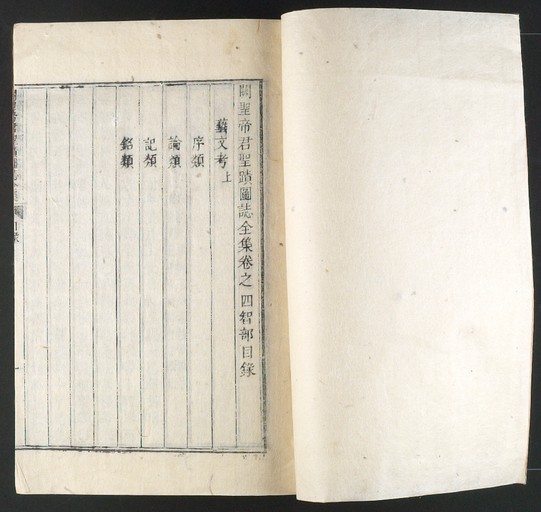 關聖帝君聖蹟圖誌全集卷之四智部目錄
藝文考上
序類
論類
記類
銘類
目錄